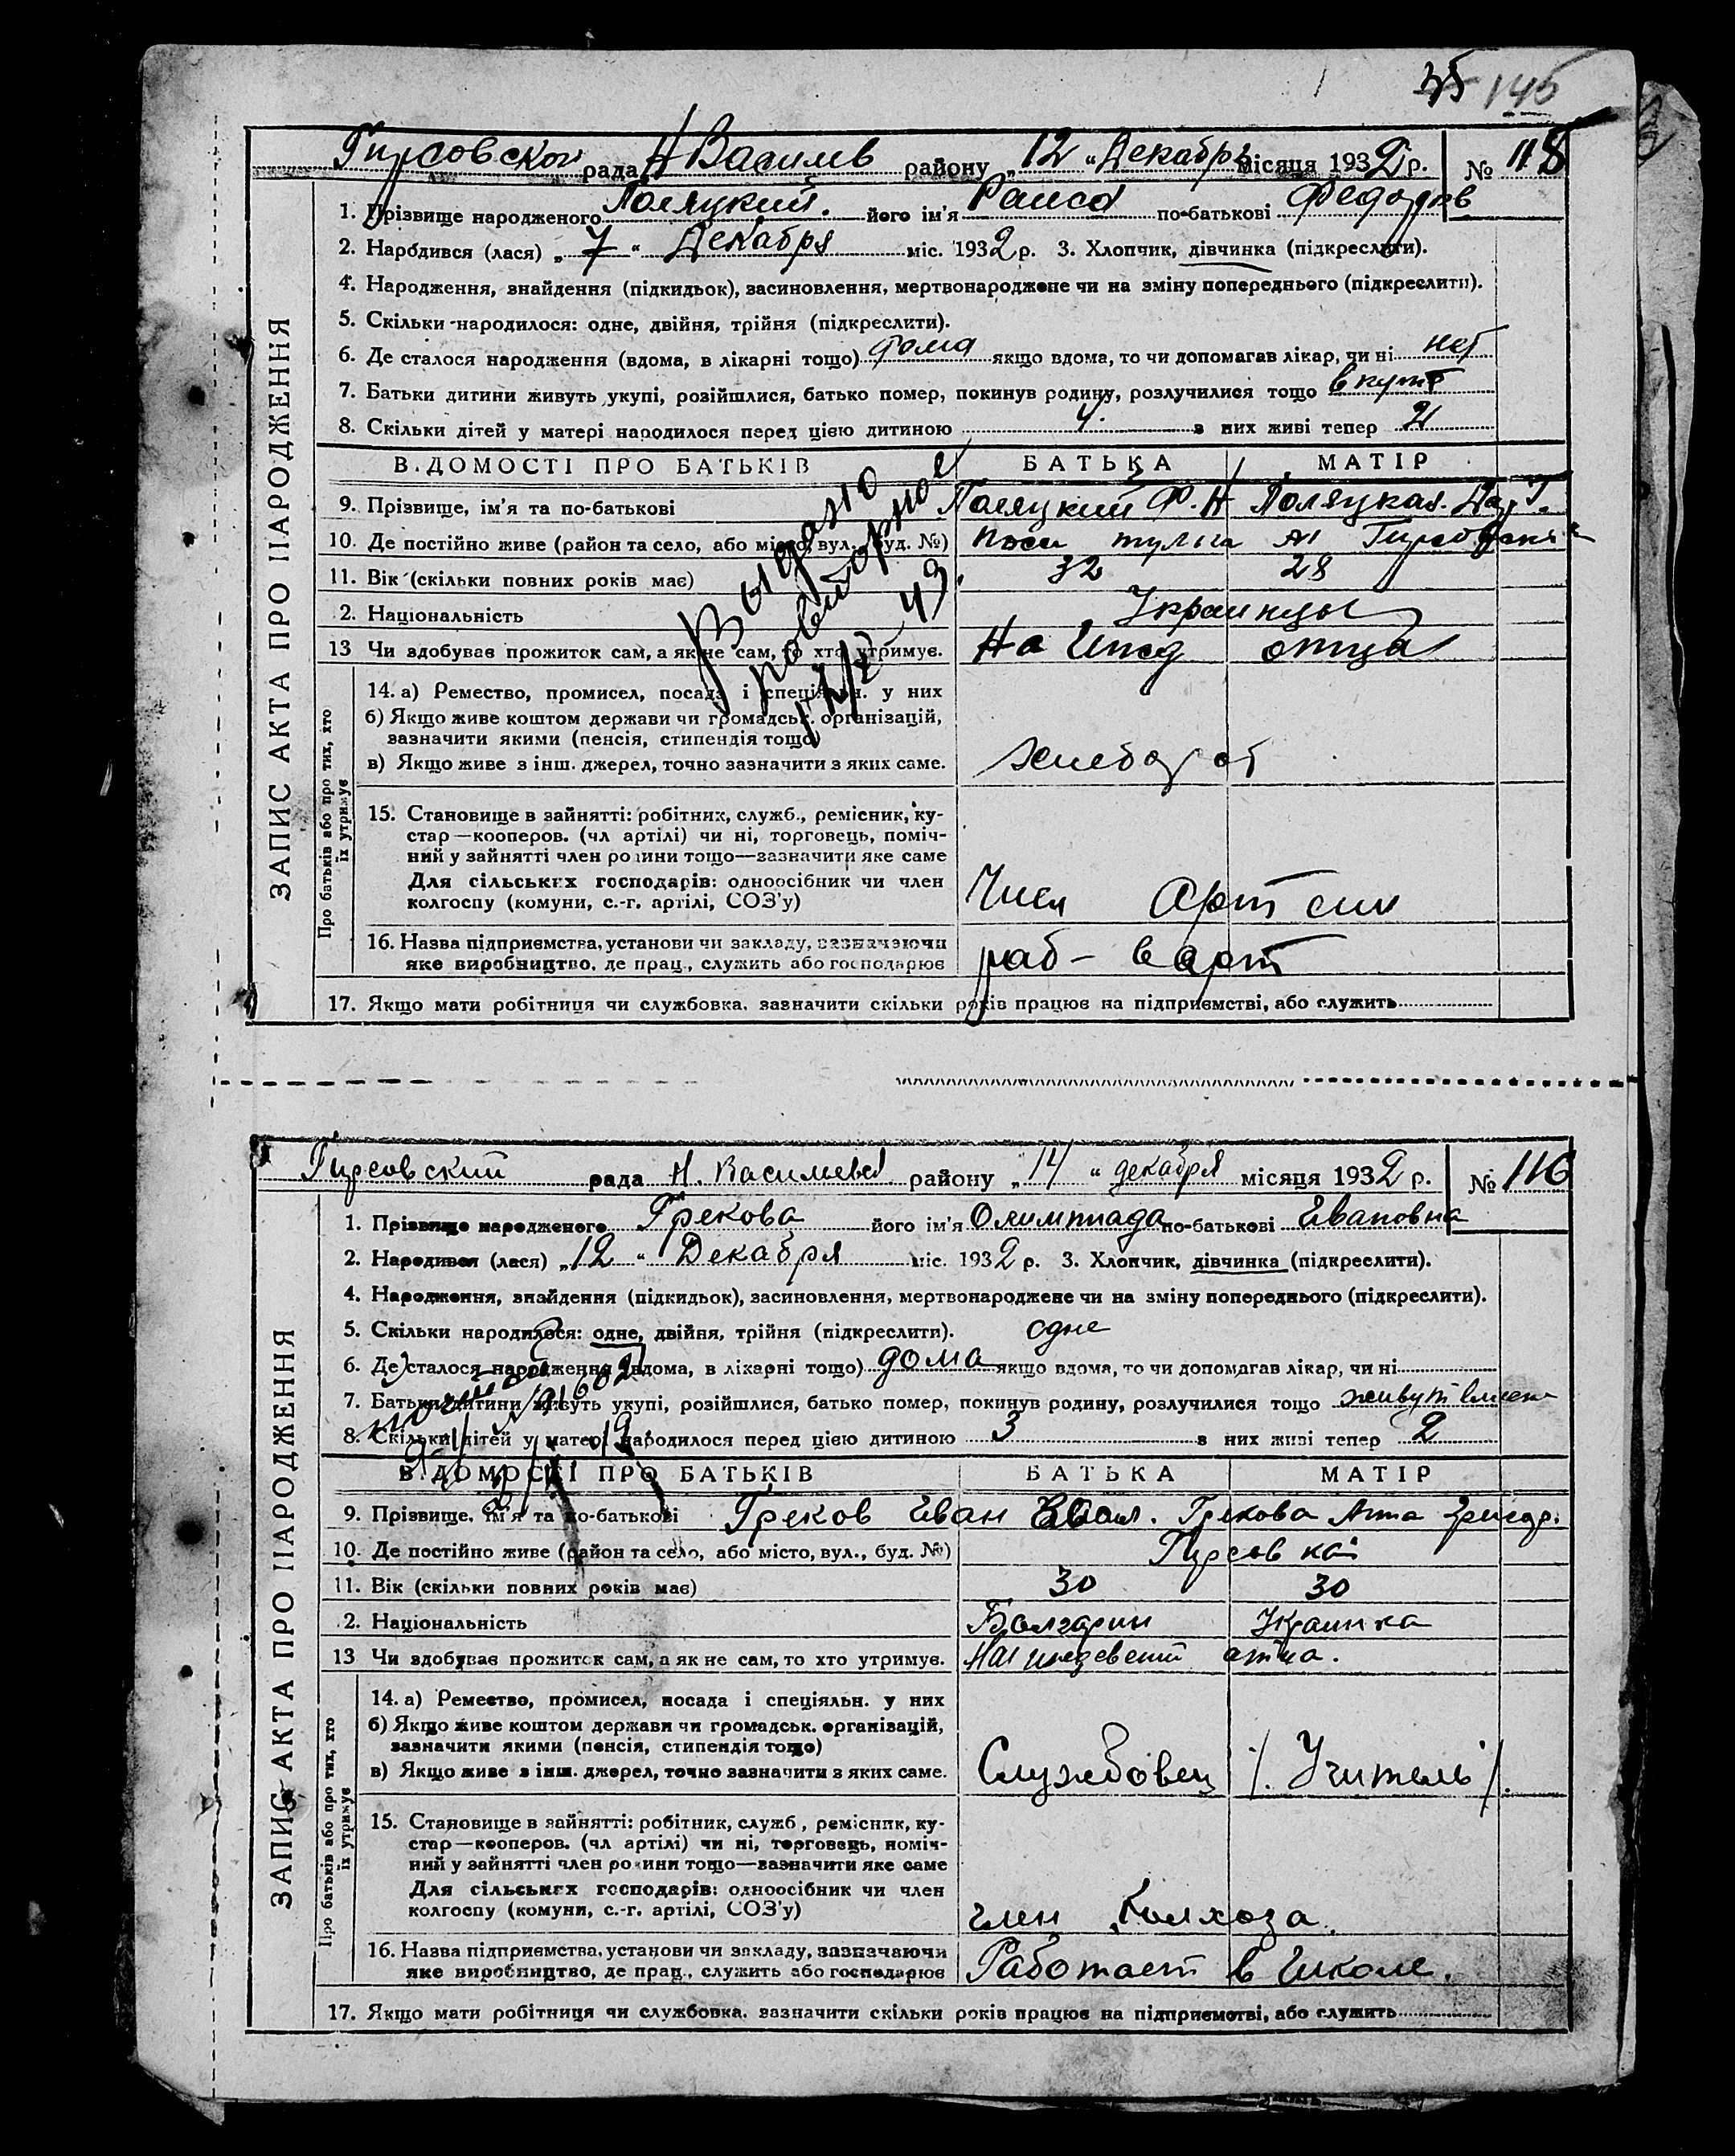 35 145
Гирсовской рада Н Василев району „12" Декабря місяця 1932 р. № 118
1. Прізвище народженого Поляцкий. його ім'я Раиса по-батькові Федоров
2. Народився (лася) „7" Декабря міс. 1932 р. 3. Хлопчик, дівчинка (підкреслити).
4. Народження, знайдення (підкидьок), засиновлення, мертвонароджене чи на зміну попереднього (підкреслити).
5. Скільки народилося: одне, двійня, трійня (підкреслити).
6. Де сталося народження (вдома, в лікарні тощо) дома якщо вдома, то чи допомагав лікар, чи ні нет
7. Батьки дитини живуть укупі, розійшлися, батько помер, покинув родину, розлучилися тощо вкупе
8. Скільки дітей у матері народилося перед цією дитиною 4. з них живі тепер 2
В.ДОМОСТІ ПРО БАТЬКІВ БАТЬКА МАТІР
9. Прізвище, ім'я та по-батькові Поляцкий Ф. Н Поляцкая. Г.
10. Де постійно живе (район та село, або місто, вул., буд. №)
11. Вік (скільки повних років має) 32 28
2. Національність Украинцы
Выдано
повторное
43
13 Чи здобував прожиток сам, а як не сам, то хто утримує. На Ижд отца
14. а) Ремество, промисел, посада і спеціяльн. у них
б) Якщо живе коштом держави чи громадськ. організацій,
зазначити якими (пенсія, стипендія тощо)
в) Якщо живе з інш. джерел, точно зазначити з яких саме. хлебороб
15. Становище в зайнятті: робітник, служб., ремісник, ку-
стар—кооперов. (чл артілі) чи ні, торговець, поміч-
ний у зайнятті член родини тощо—зазначити яке саме
Для сільських господарів: одноосібник чи член
колгоспу (комуни, с.-г. артілі, СОЗ'у) Член Арт
16. Назва підприємства, установи чи закладу, зазначаючи
яке виробництво, де прац., служить або господарює раб – в арт
17. Якщо мати робітниця чи службовка, зазначити скільки років працює на підприємстві, або служить
ЗАПИС АКТА ПРО НАРОДЖЕННЯ
Про батьків або про тих, хто
їх утримує
Гирсовский рада Н. Васильевс району „14" декабря місяця 1932 р. № 116
1. Прізвище народженого Грекова його ім'я Олимпиада по-батькові Ивановна
2. Народився (лася) „12" Декабря міс. 1932 р. 3. Хлопчик, дівчинка (підкреслити).
4. Народження, знайдення (підкидьок), засиновлення, мертвонароджене чи на зміну попереднього (підкреслити).
5. Скільки народилося: одне, двійня, трійня (підкреслити). одне
6. Де сталося народження (вдома, в лікарні тощо) дома якщо вдома, то чи допомагав лікар, чи ні
7. Батьки дитини живуть укупі, розійшлися, батько помер, покинув родину, розлучилися тощо живут вместе
8. Скільки дітей у матері народилося перед цією дитиною 3 з них живі тепер 2
В.ДОМОСТІ ПРО БАТЬКІВ БАТЬКА МАТІР
9. Прізвище, ім'я та по-батькові Греков Иван Грекова Анна
10. Де постійно живе (район та село, або місто, вул., буд. №) Гирсовка
11. Вік (скільки повних років має) 30 30
2. Національність Болгарин Украинка
13 Чи здобував прожиток сам, а як не сам, то хто утримує. На иждевении отца.
14. а) Ремество, промисел, посада і спеціяльн. у них
б) Якщо живе коштом держави чи громадськ. організацій,
зазначити якими (пенсія, стипендія тощо)
в) Якщо живе з інш. джерел, точно зазначити з яких саме. Службовец /. Учитель /.
15. Становище в зайнятті: робітник, служб., ремісник, ку-
стар—кооперов. (чл артілі) чи ні, торговець, поміч-
ний у зайнятті член родини тощо—зазначити яке саме
Для сільських господарів: одноосібник чи член
колгоспу (комуни, с.-г. артілі, СОЗ'у) член колхоза.
16. Назва підприємства, установи чи закладу, зазначаючи
яке виробництво, де прац., служить або господарює Работает в Школе.
17. Якщо мати робітниця чи службовка, зазначити скільки років працює на підприємстві, або служить
ЗАПИС АКТА ПРО НАРОДЖЕННЯ
Про батьків або про тих, хто
їх утримує